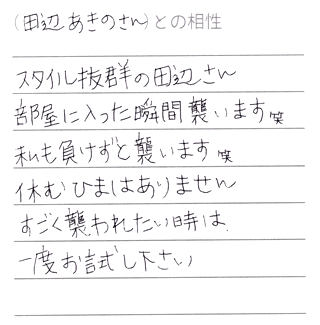 (田辺あきのさん)との相性
スタイル抜群の田辺さん
部屋に入った瞬間襲います笑
私も負けずと襲います笑
休むひまはありません
すごく襲われたい時は
一度お試し下さい